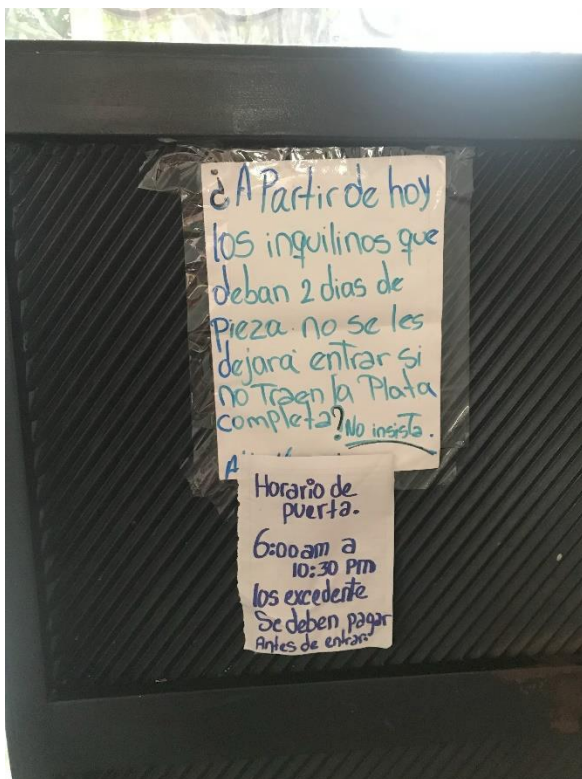 ¿A Partir de hoy
los inquilinos que
deban 2 dias de
Pieza no se les
dejará entrar si
no Traen la Plata
completa? No insista.
Horario de
puerta.
6:00 am a
10:30 PM
los excedente
Se deben pagar
Antes de entrar.